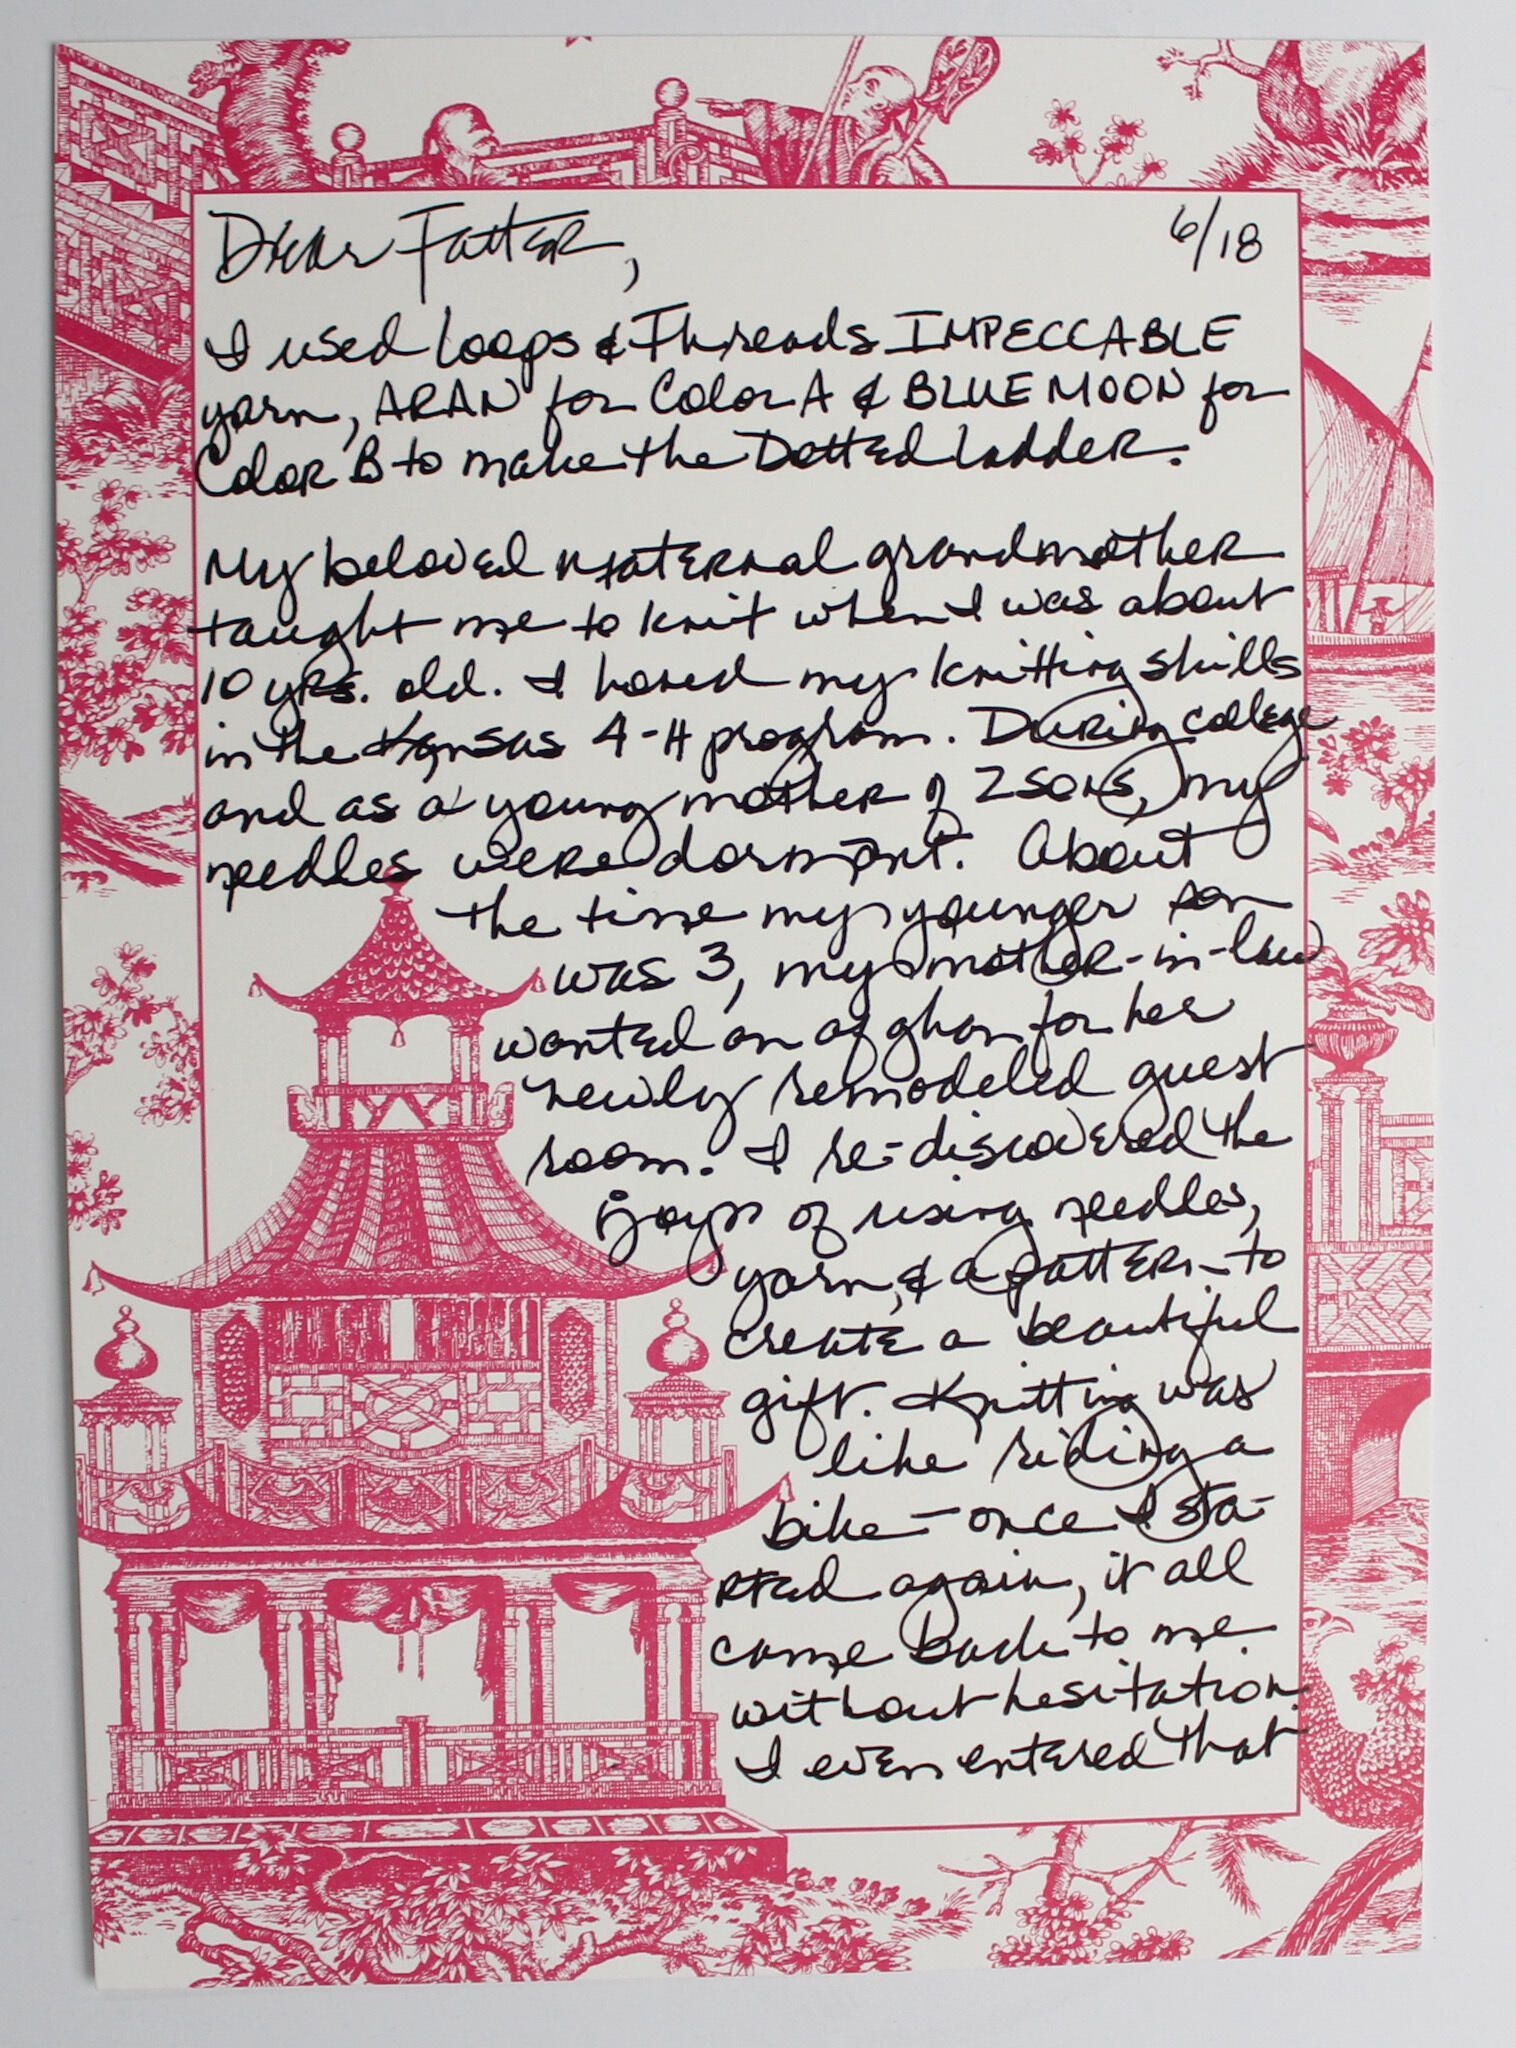 Dear Fatter, 6/18
I used Loops & Threads IMPECCABLE
yarn, ARAN for Color A & BLUE MOON for
Color B to make the Dotted Ladder.
My beloved maternal grandmother
taught me to knit when I was about
10 yrs. old. I honed my knitting skills
in the Kansas 4-H program. During college
and as a young mother of 2 sons, my
needles were dormant. About
the time my younger son
was 3, my mother-in-law
wanted an afghan for her
newly remodeled guest
room. I re-discovered the
joys of using needles,
yarn, & a pattern to
create a beautiful
gift. Knitting was
like riding a
bike - once I sta-
rted again, it all
came back to me
without hesitation.
I even entered that